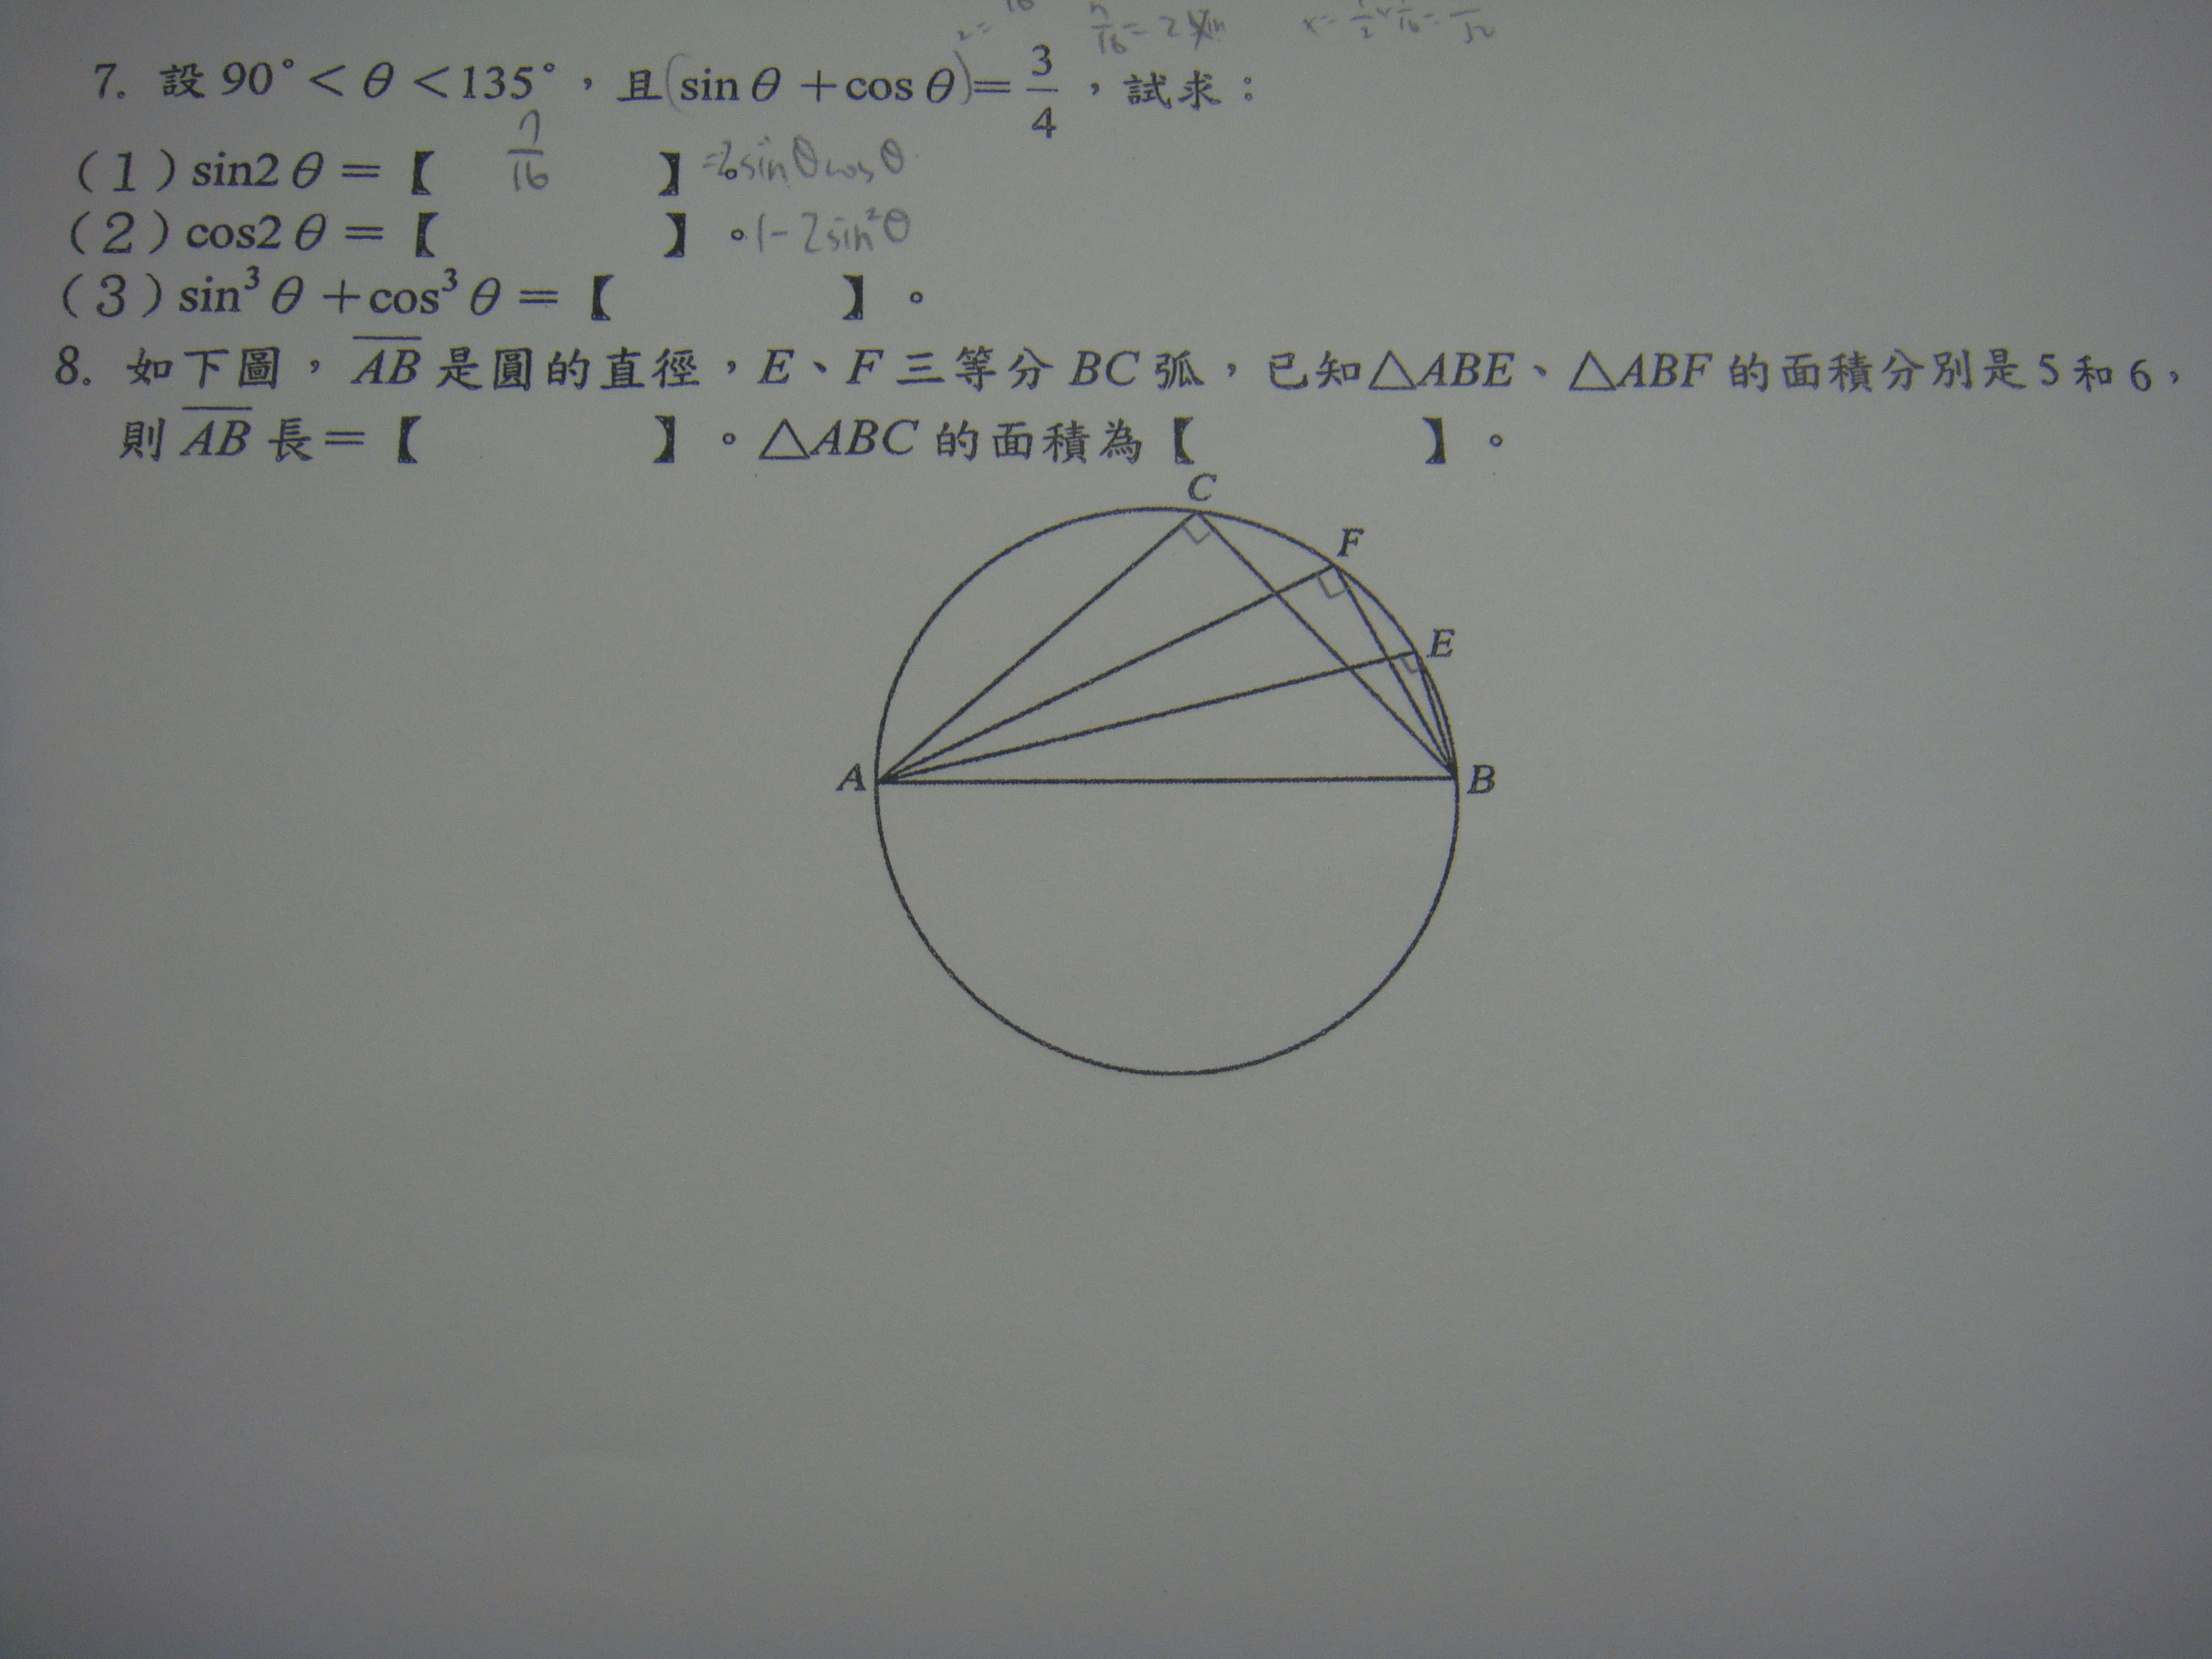 7. 設 90°<θ<135°，且(sin θ +cos θ)²= 3/4 ，試求：
(1) sin2 θ =【 7/16 】。=2sinθcosθ
(2) cos2 θ =【 】。1-2sin²θ
(3) sin³ θ +cos³ θ =【 】。
8. 如下圖，AB 是圓的直徑，E、F 三等分 BC 弧，已知△ABE、△ABF 的面積分別是 5 和 6，
則 AB 長=【 】。△ABC 的面積為【 】。
C
F
E
A
B